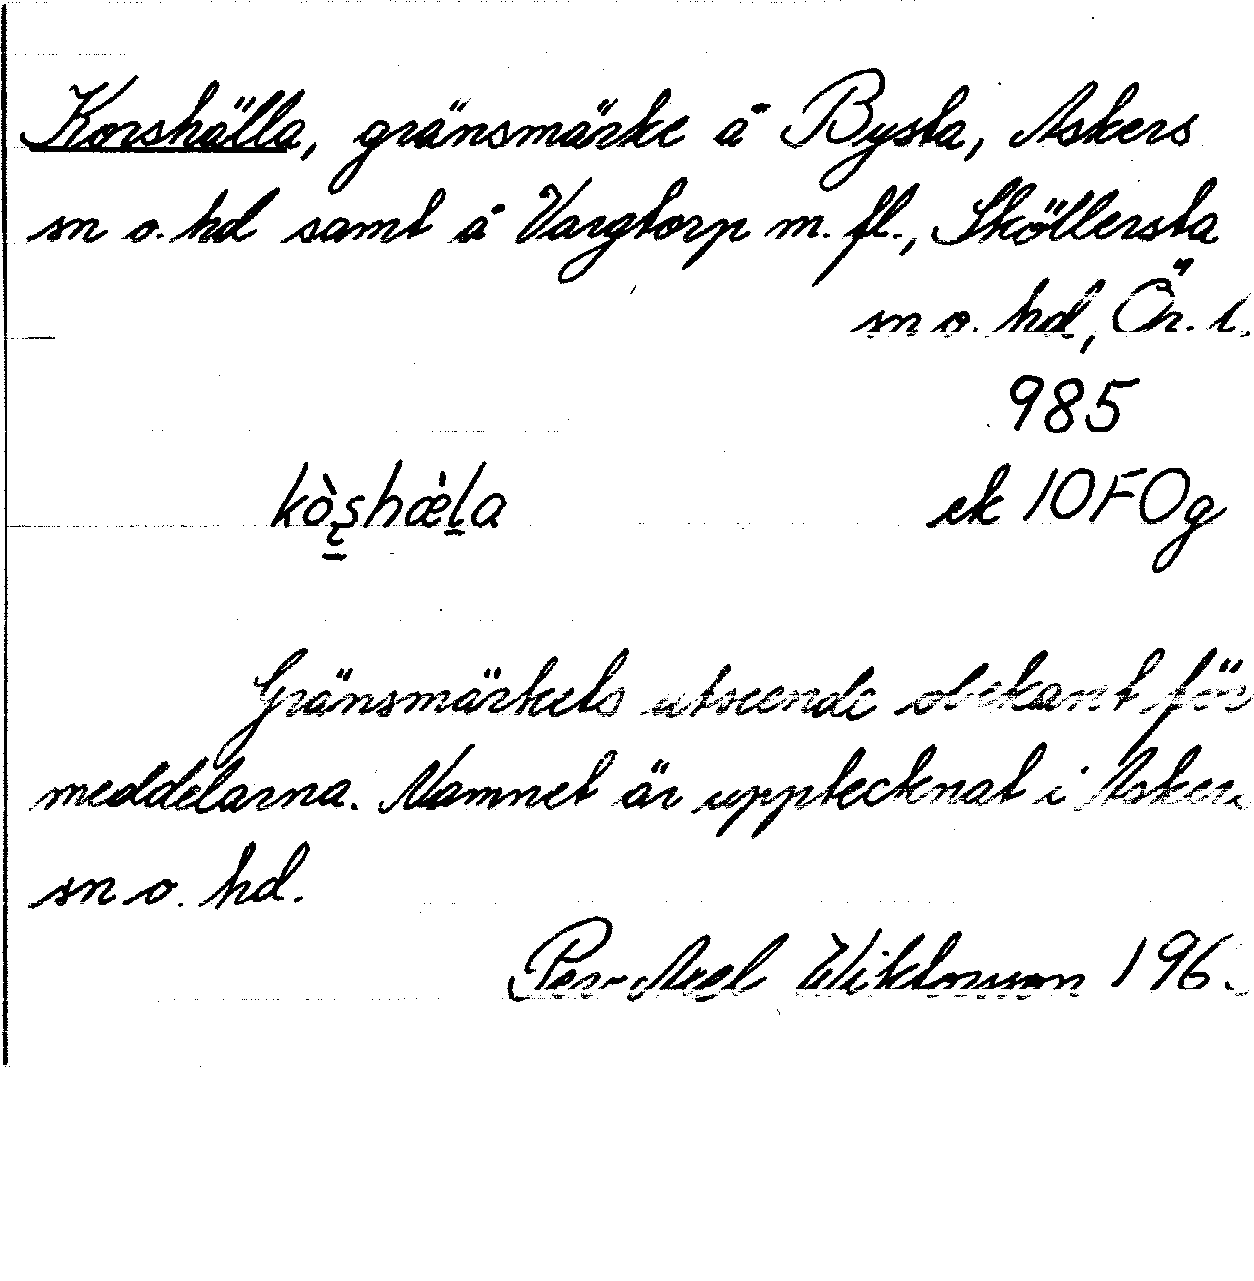 Korshälla, gränsmärke å Bysta, Askers
sn o. hd samt å Vargtorp m. fl., Sköllersta
sn o. hd, Ör. l.
985
kòʂhæ̀la ek 10F0g
Gränsmärkets utseende obekant för
meddelarna. Namnet är upptecknat i Askers
sn o. hd.
Per-Axel Wiktorsson 196